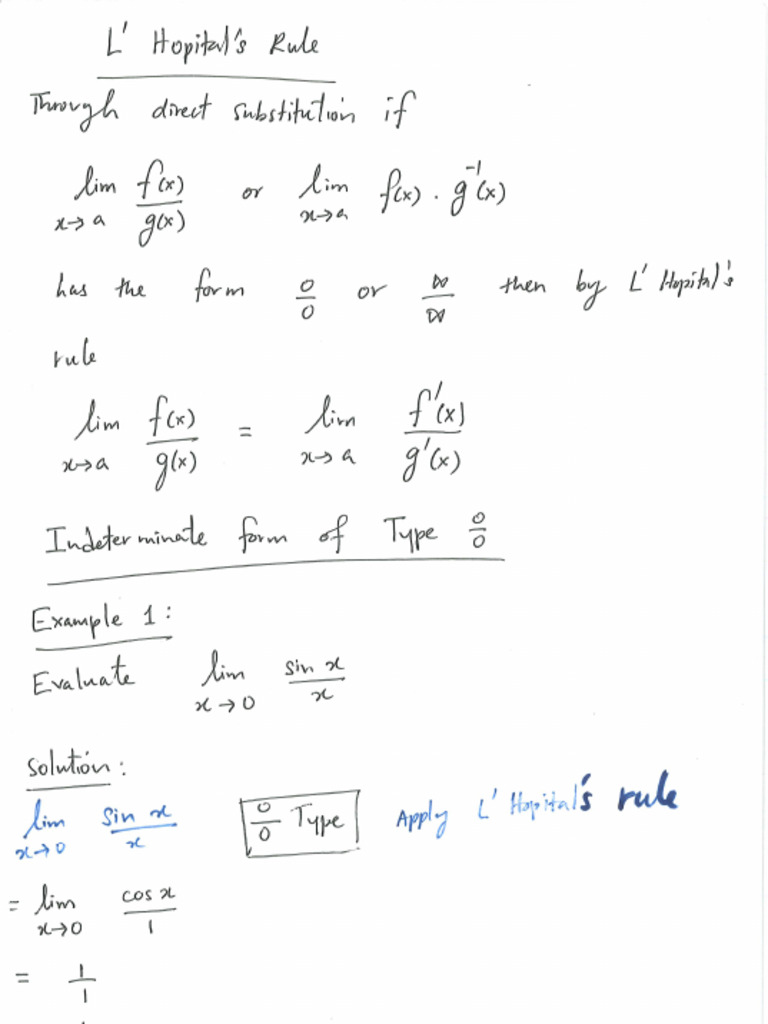 L' Hopital's Rule
Through direct substitution if
lim x→a f(x)/g(x) or lim x→a f(x) . g⁻¹(x)
has the form 0/0 or ∞/∞ then by L' Hopital's
rule
lim x→a f(x)/g(x) = lim x→a f'(x)/g'(x)
Indeterminate form of Type 0/0
Example 1:
Evaluate lim x→0 sin x/x
Solution:
lim x→0 sin x/x 0/0 Type Apply L' Hopital's rule
= lim x→0 cos x/1
= 1/1